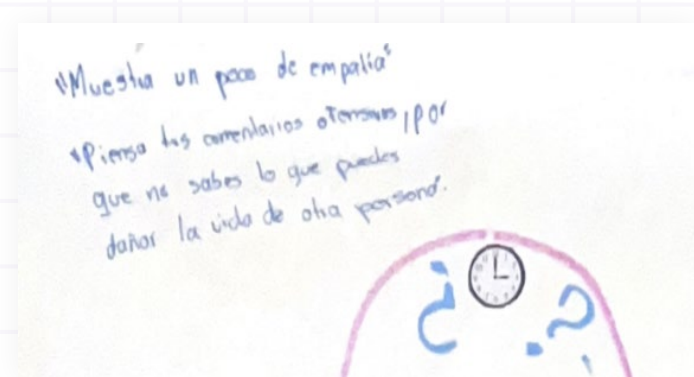 "Muestra un poco de empatía"
"Piensa tus comentarios ofensivos, por
que no sabes lo que puedes
dañar la vida de otra persona".
¿ ?